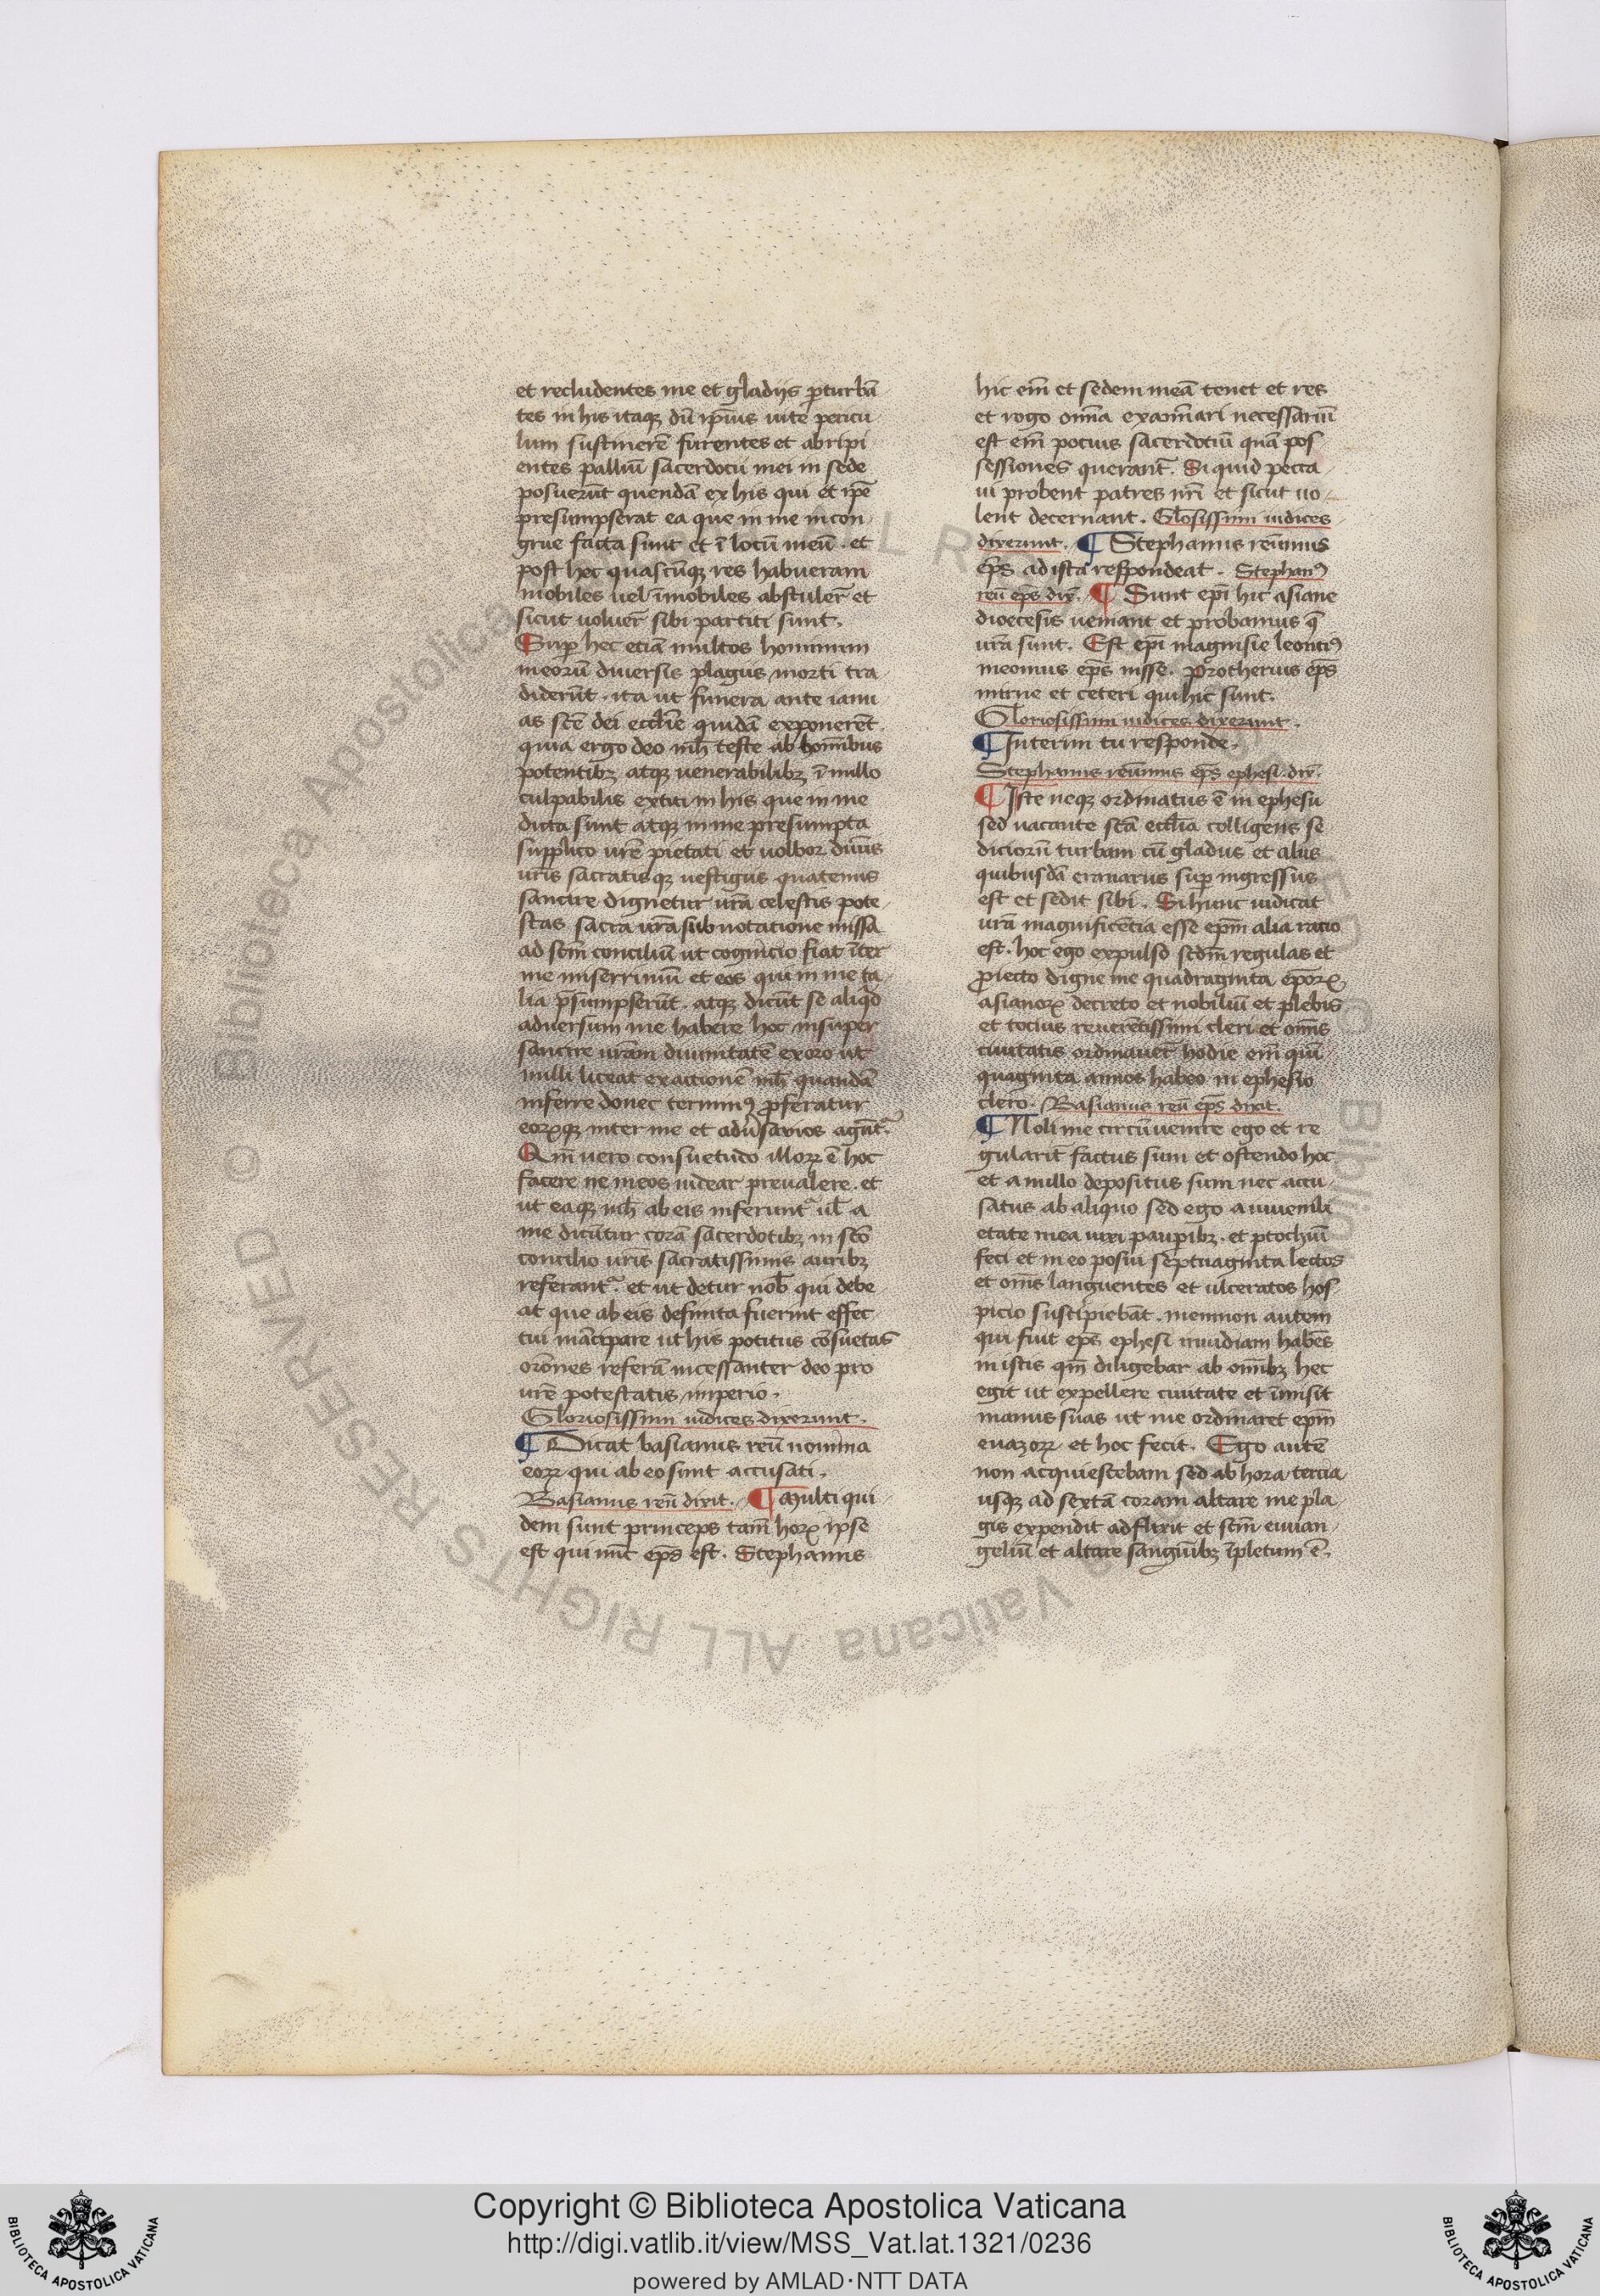 et recludentes me et gladijs ꝑturbā
tes in his itaqꝫ dū ipīus uite pericu
lum sustinerē furentes et abripi
entes palliū sacerdocii mei in sede
posuerūt quendā ex his qui et ip̄e
presumpserat ea que in me incon
grue facta sunt et ī locū meū . et
post hec quascūqꝫ res habueram
mobiles uel īmobiles abstuler̄ et
sicut uoluer̄ sibi partiti sunt.
Suꝑ hec etiā multos hominum
meorū diuersis plagiis morti tra
diderūt . ita ut funera ante ianu
as scē dei eccl̄ie quidā exponerēt
quia ergo deo mh̄ teste ab hoīnibus
potentibꝫ atqꝫ uenerabilibꝫ ī nullo
culpabilis extiti in his que in me
dicta sunt atqꝫ in me presumpta
supplico ur̄e pietati et uoluor diuīis
ur̄is sacratisqꝫ uestigiis quatenus
sancire dignetur ur̄a celestis pote
stas sacra ur̄a subnotatione missa
ad scm̄ conciliū ut cognicio fiat īter
me miserrimū et eos qui in me ta
lia p̄sumpserūt . atqꝫ dicūt se aliqd
aduersum me habere hoc insuper
sanctire ur̄am diuinitatē exoro ut
nulli liceat exactionē mh̄ quandā
inferre donec terminꝰ ꝓferatur
eorꝝqꝫ inter me et adūsarios agūt᷑.
Qm̄ uero consuetudo illorꝝ ē hoc
facere ne meos uidear preualere . et
ut eaqꝫ mh̄ ab eis inferunt᷑ ul̄ a
me dicūtur corā sacerdotibꝫ in scō
concilio ur̄is sacratissimis auribꝫ
referant᷑. et ut detur nob̄ qui debe
at que ab eis definita fuerint effec
tui mācipare ut his potitus cōsuetas
orōnes referā incessanter deo pro
ur̄e potestatis imperio.
Gloriosissimi iudices dixerunt.
¶ Dicat basianus reū nomina
eorꝝ qui ab eo sunt accusati.
Basianus reū dixit. ¶ Multi qui
dem sunt princeps tam̄ horꝝ ipse
est qui nūc ep̄s est. Stephanus
hic em̄ et sedem meā tenet et res
et rogo omīa examīari necessariū
est em̄ pocius sacerdotiū quā pos
sessiones querant᷑. Si quid pecca
ui probent patres nr̄i et sicut uo
lent decernant. Gl̄osissimi iudices
dixerunt. ¶ Stephanus reūimus
ep̄s ad ista respondeat. Stephanꝰ
reū ep̄s dix̄. ¶ Sunt ep̄i hic asiane
diocesis ueniant et probamus q̄
ur̄a sunt. Est ep̄i magnisie leontiꝰ
meonius ep̄s nisse. Protherius ep̄s
mirne et ceteri qui hic sunt.
Gloriosissimi iudices dixerunt.
¶ Interim tu responde.
Stephanus reūimus ep̄s ephesi. dix̄.
¶ Iste neqꝫ ordinatus ē in ephesu
sed uacante scā eccl̄ia colligens se
diciorū turbam cū gladiis et aliis
quibusdā eranariis suꝑ ingressus
est et sedit sibi. Si hunc iudicat
ur̄a magnificētia esse ep̄m alia racio
est. hoc ego expulso scdm̄ regulas et
ꝓiecto digne me quadraginta ep̄orꝝ
asianorꝝ decreto et nobiliū et plebis
et tocius reuerētissimi cleri et omīs
ciuitatis ordinauer̄ hodie em̄ quī
quaginta annos habeo in ephesio
clero. Basianus reū ep̄s dixit.
¶ Noli me circūuenire ego et re
gularit̄ factus sum et ostendo hoc
et a nullo depositus sum nec accu
satus ab aliquo sed ego a iuuenili
etate mea uixi pauꝑibꝫ. et ptochiū
feci et in eo posui septuaginta lectos
et omīs languentes et ulceratos hos
picio suscipiebāt. memnon autem
qui fuit ep̄s ephesi inuidiam habēs
in istis qm̄ diligebar ab omībꝫ hec
egit ut expellere ciuitate et īmisit
manus suas ut me ordinaret ep̄m
euazorꝝ et hoc fecit. Ego autē
non acquiescebam sed ab hora tercia
usqꝫ ad sextā coram altare me pla
gis expendit adflixit et scm̄ euuan
geliū et altare sanguībꝫ īpletum ē.
Copyright © Biblioteca Apostolica Vaticana
http://digi.vatlib.it/view/MSS_Vat.lat.1321/0236
powered by AMLAD·NTT DATA
BIBLIOTECA APOSTOLICA VATICANA
BIBLIOTECA APOSTOLICA VATICANA